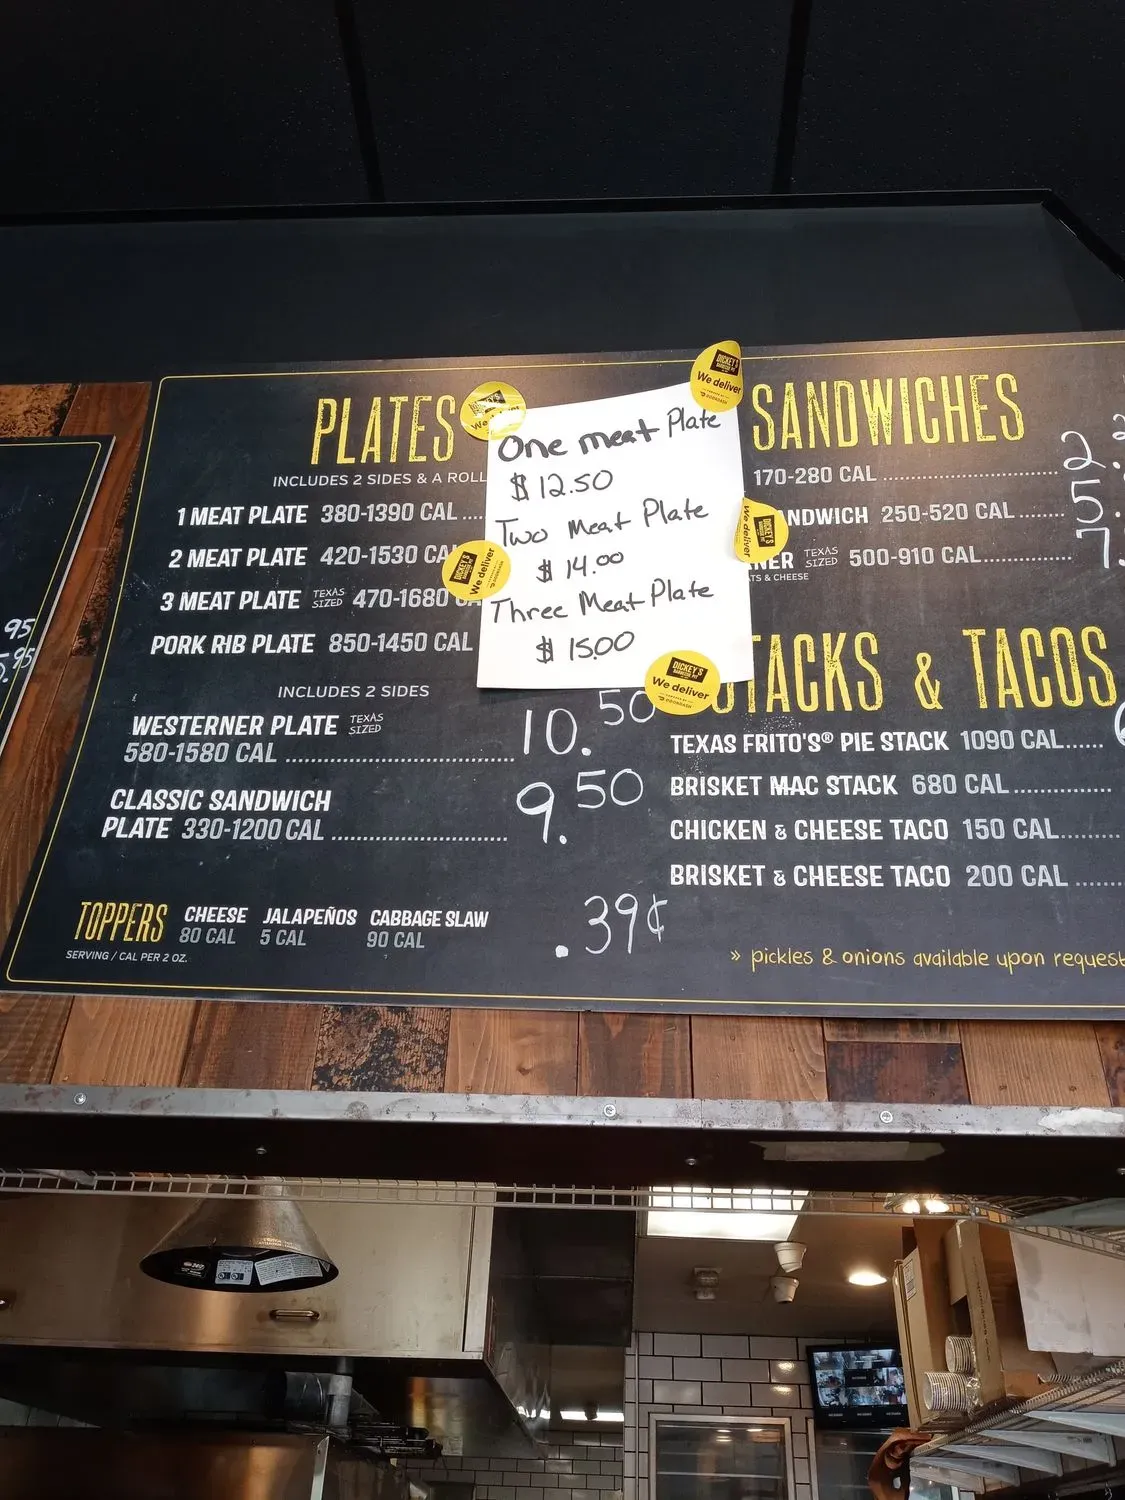 PLATES
INCLUDES 2 SIDES & A ROLL
1 MEAT PLATE 380-1390 CAL....
2 MEAT PLATE 420-1530 CAL
3 MEAT PLATE TEXAS SIZED 470-1680
PORK RIB PLATE 850-1450 CAL
INCLUDES 2 SIDES
WESTERNER PLATE TEXAS SIZED
580-1580 CAL ........................ 10.50
CLASSIC SANDWICH
PLATE 330-1200 CAL ........................ 9.50
TOPPERS CHEESE JALAPEÑOS CABBAGE SLAW
80 CAL 5 CAL 90 CAL
SERVING / CAL PER 2 OZ.
.39¢
One meat Plate
$12.50
Two Meat Plate
$14.00
Three Meat Plate
$15.00
We deliver
DICKEY'S
BARBECUE PIT
We deliver
DICKEY'S
We deliver
DICKEY'S
We deliver
DICKEY'S
BARBECUE PIT
We deliver
DOORDASH
SANDWICHES
170-280 CAL ........................ 2.
250-520 CAL ........ 5.
TEXAS SIZED 500-910 CAL ............. 7.
& CHEESE
& TACOS
TEXAS FRITO'S® PIE STACK 1090 CAL......
BRISKET MAC STACK 680 CAL ...............
CHICKEN & CHEESE TACO 150 CAL.........
BRISKET & CHEESE TACO 200 CAL .......
» pickles & onions available upon request
95
.95